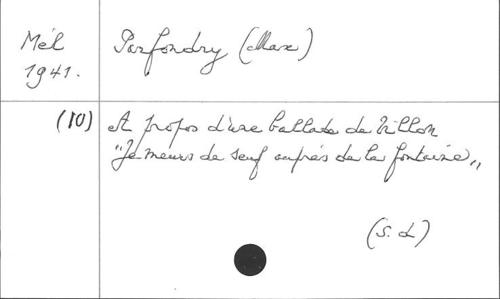 Mél Parfondry (Max)
1941.
(10) A propos d'une ballade de Villon
"Je meurs de seuf auprès de la fontaine"
(s. d)